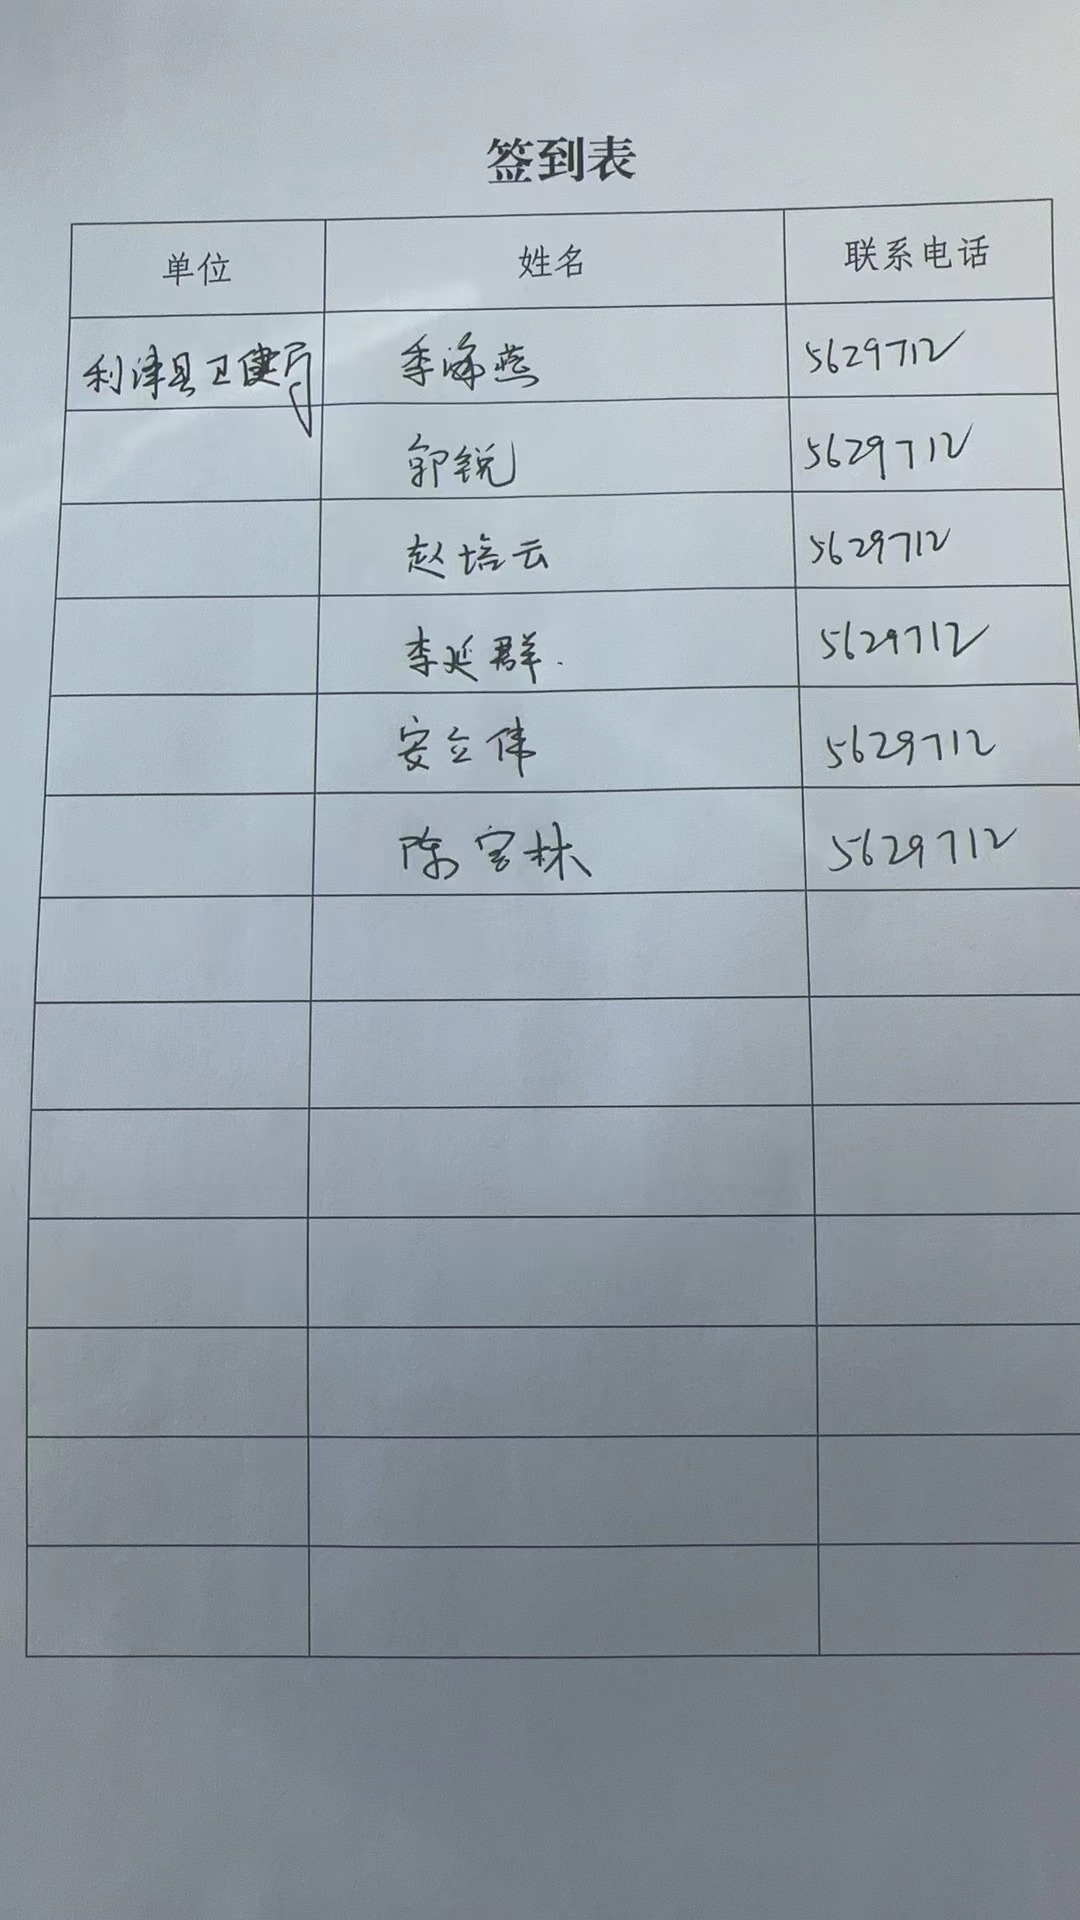 签到表
单位 姓名 联系电话
利津县卫健局 季海燕 5629712
郭锐 5629712
赵培云 5629712
李延群. 5629712
安立伟 5629712
陈宝林 5629712